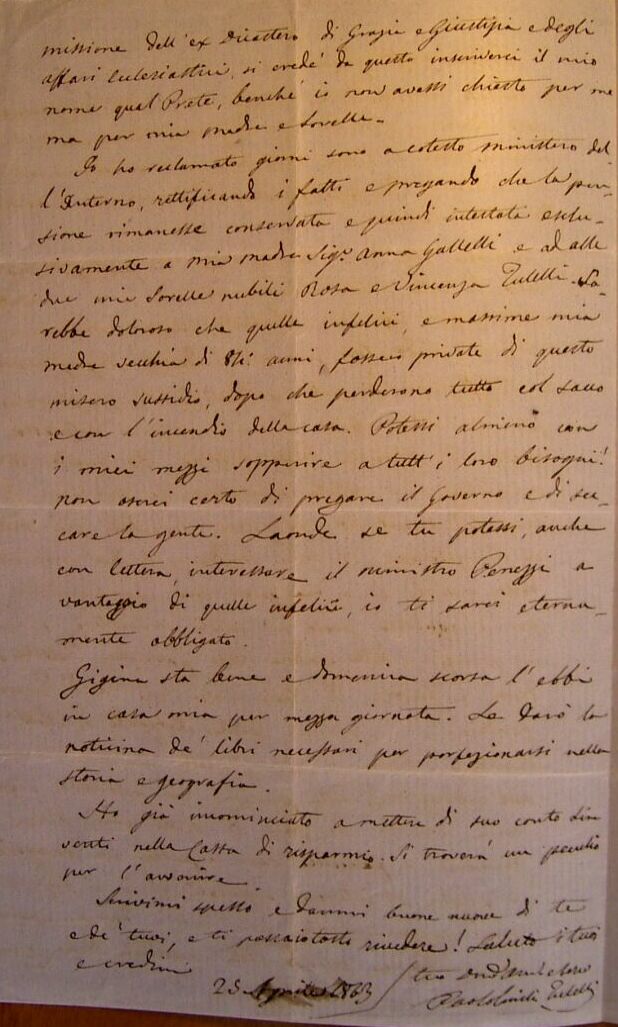 missione dell'ex Dicastero di Grazia e Giustizia e degli
affari Eclesiastici, si credé da questo inserirvi il mio
nome qual Prete, benché io non avessi chiesto per me
ma per mia madre e Sorelle.
Io ho reclamato giorni sono a cotesto ministero del-
l'Interno, rettificando i fatti e pregando che la pen-
sione rimanesse conservata e quindi intestata esclu-
sivamente a mia madre Sig.ª Anna Gallelli e ad alle
due mie Sorelle nubili Rosa e Vincenza Tulelli. Sa-
rebbe doloroso che quelle infelici, e massime mia
madre vecchia di anni, fossero private di questo
misero sussidio, dopo che perderono tutto col sacco
e con l'incendio della casa. Potessi almeno con
i miei mezzi sopperire a tutt'i loro bisogni!
non oserei certo di pregare il Governo e di sec-
care la gente. Laonde se tu potessi, anche
con lettera, interessare il ministro Peruzzi a
vantaggio di quelle infelici, io ti sarei eterna-
mente obbligato.
Gigina sta bene e domenica scorsa l'ebbi
in casa mia per mezza giornata. Le darò la
noticina de' libri necessari per perfezionarsi nella
storia e geografia.
Ho già incominciato a mettere di suo conto
venti nella Cassa di risparmio. Si troverà un peculio
per l'avvenire.
Scrivimi spesso e dammi buone nuove di te
e de' tuoi, e ti possa io tosto rivedere! Saluto i tuoi
e credimi
25 Aprile 1863 tuo
Tulelli